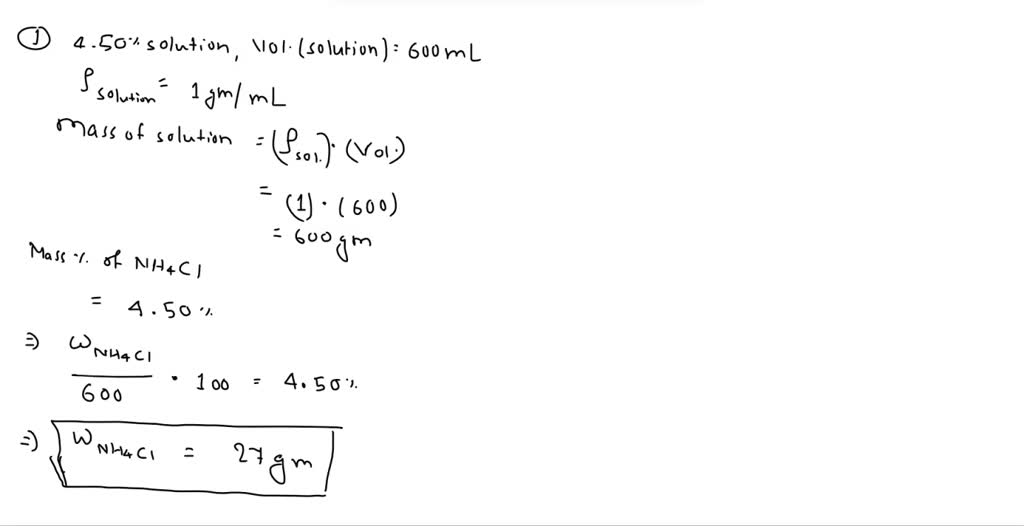 ① 4.50% solution, Vol. (solution) = 600 mL
ρ solution = 1 gm/mL
Mass of solution = (ρ sol.) · (Vol.)
= (1) · (600)
= 600 gm
Mass % of NH4Cl
= 4.50 %
⇒ W NH4Cl / 600 · 100 = 4.50%
⇒ W NH4Cl = 27 gm